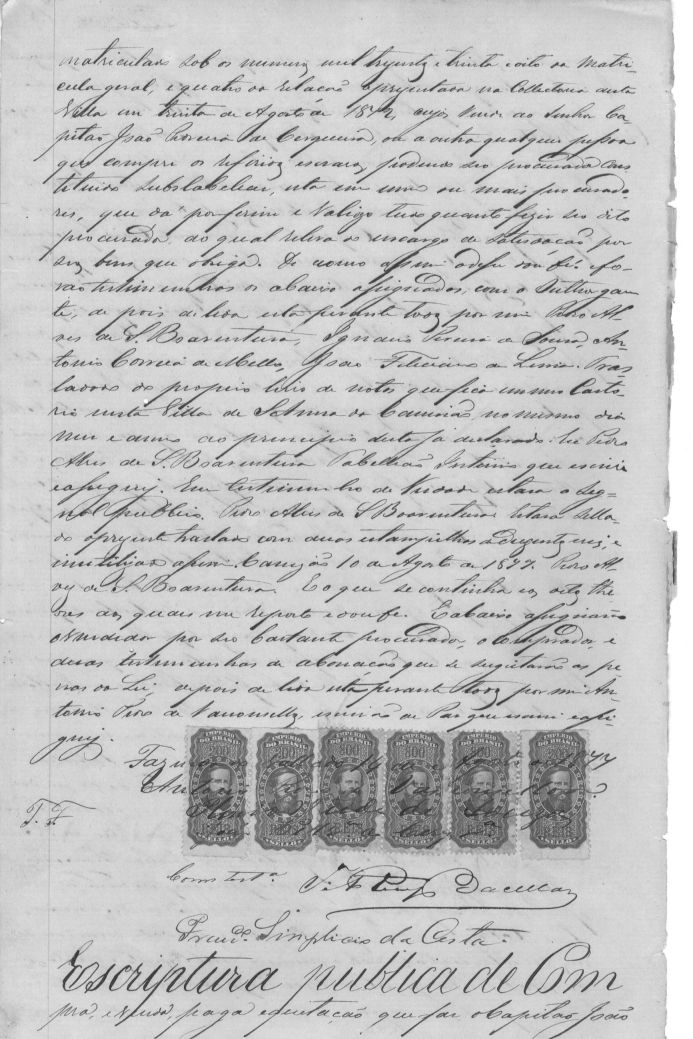 matriculados sob os numeros mil trezentos e trinta e oito da Matri-
cula geral, e quatro da relação apresentada na Collectoria desta
Villa em trinta de Agosto de 1872, cujos vende ao Senhor Ca-
pitão João Pereira de Cerqueira, ou a outra qualquer pessoa
que compre os referidos escravos, podendo seo procurador cons-
tituido substabelecer, esta em um ou mais procurado-
res, que dá por firme e valioso tudo quanto fizer seo dito
procurador, do qual releva do encargo de satisdação por
seos bens que obriga. De como assim o disse dou fé. e fo-
rão testemunhas os abaixo assignados, com o Outhorgan-
te, depois de lida esta perante todos por mim Pedro Al-
ves de S. Boaventura, Ignacio Pereira de Souza, An-
tonio Correia de Mello, João Feliciano de Lima. Tras-
ladada do proprio livro de notas que fica em meu Carto-
rio nesta Villa de Sant'Anna do Camisão no mesmo dia
mez e anno ao principio desta já declarado. Eu Pedro
Alves de S. Boaventura Tabellião Interino que escrevi
e assignei. Em testemunho de verdade estava o sig-
nal publico. Pedro Alves de S. Boaventura. Estava sella-
do o presente traslado com duas estampilhas de duzentos reis, e
inutilisadas assim. Camizão 10 de Agosto de 1877. Pedro Al-
ves de S. Boaventura. E o que se continha
dos quaes me reporto e dou fé. E abaixo assignarão
o vendedor por seo bastante procurador, o comprador, e
duas testemunhas de abonação que se sugeitarão as pe-
nas da Lei, depois de lida esta perante todos por mim An-
tonio Pires de Vasconcellos, escrivão de Paz que escrevi e assi-
gnei.
IMPERIO DO BRASIL 200 SELLO
IMPERIO DO BRASIL 200 SELLO
IMPERIO DO BRASIL SELLO
IMPERIO DO BRASIL SELLO
IMPERIO DO BRASIL SELLO
IMPERIO DO BRASIL SELLO
Fazenda 1877
Antonio Pires de Vasconcellos
Como test.ª
da Costa
Escriptura publica de Com
pra, e venda, paga e quitação, que faz o Capitão João